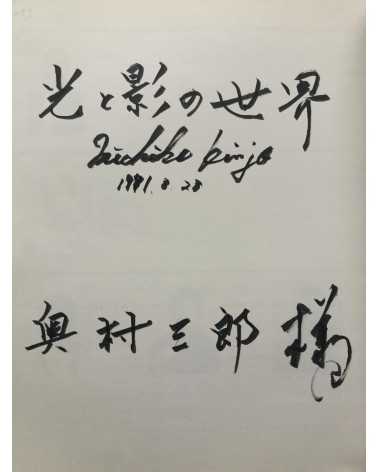 光と影の世界
Michiko Kinjo
1991.8.28
奥村三郎様